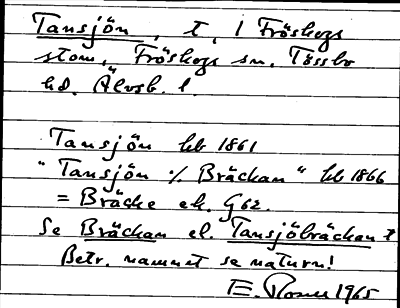 Tansjön, t, i Fröskogs
stom, Fröskogs sn, Tössbo
hd. Älvsb. l.
Tansjön hb 1861
"Tansjön % Bräckan" hb 1866
= Bräcke ek. G62.
Se Bräckan el. Tansjöbräckan t
Betr. namnet se naturn!
E. 1965